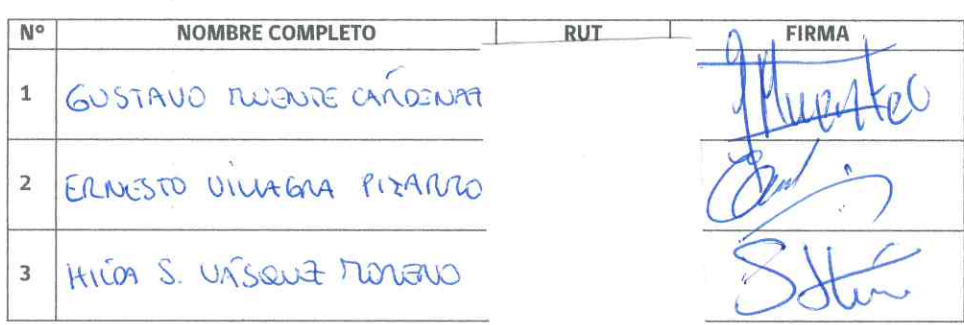 Nº NOMBRE COMPLETO RUT FIRMA
1 GUSTAVO MUENTE CÁRDENAS
2 ERNESTO VILLAGRA PIZARRO
3 HILDA S. VÁSQUEZ MORENO